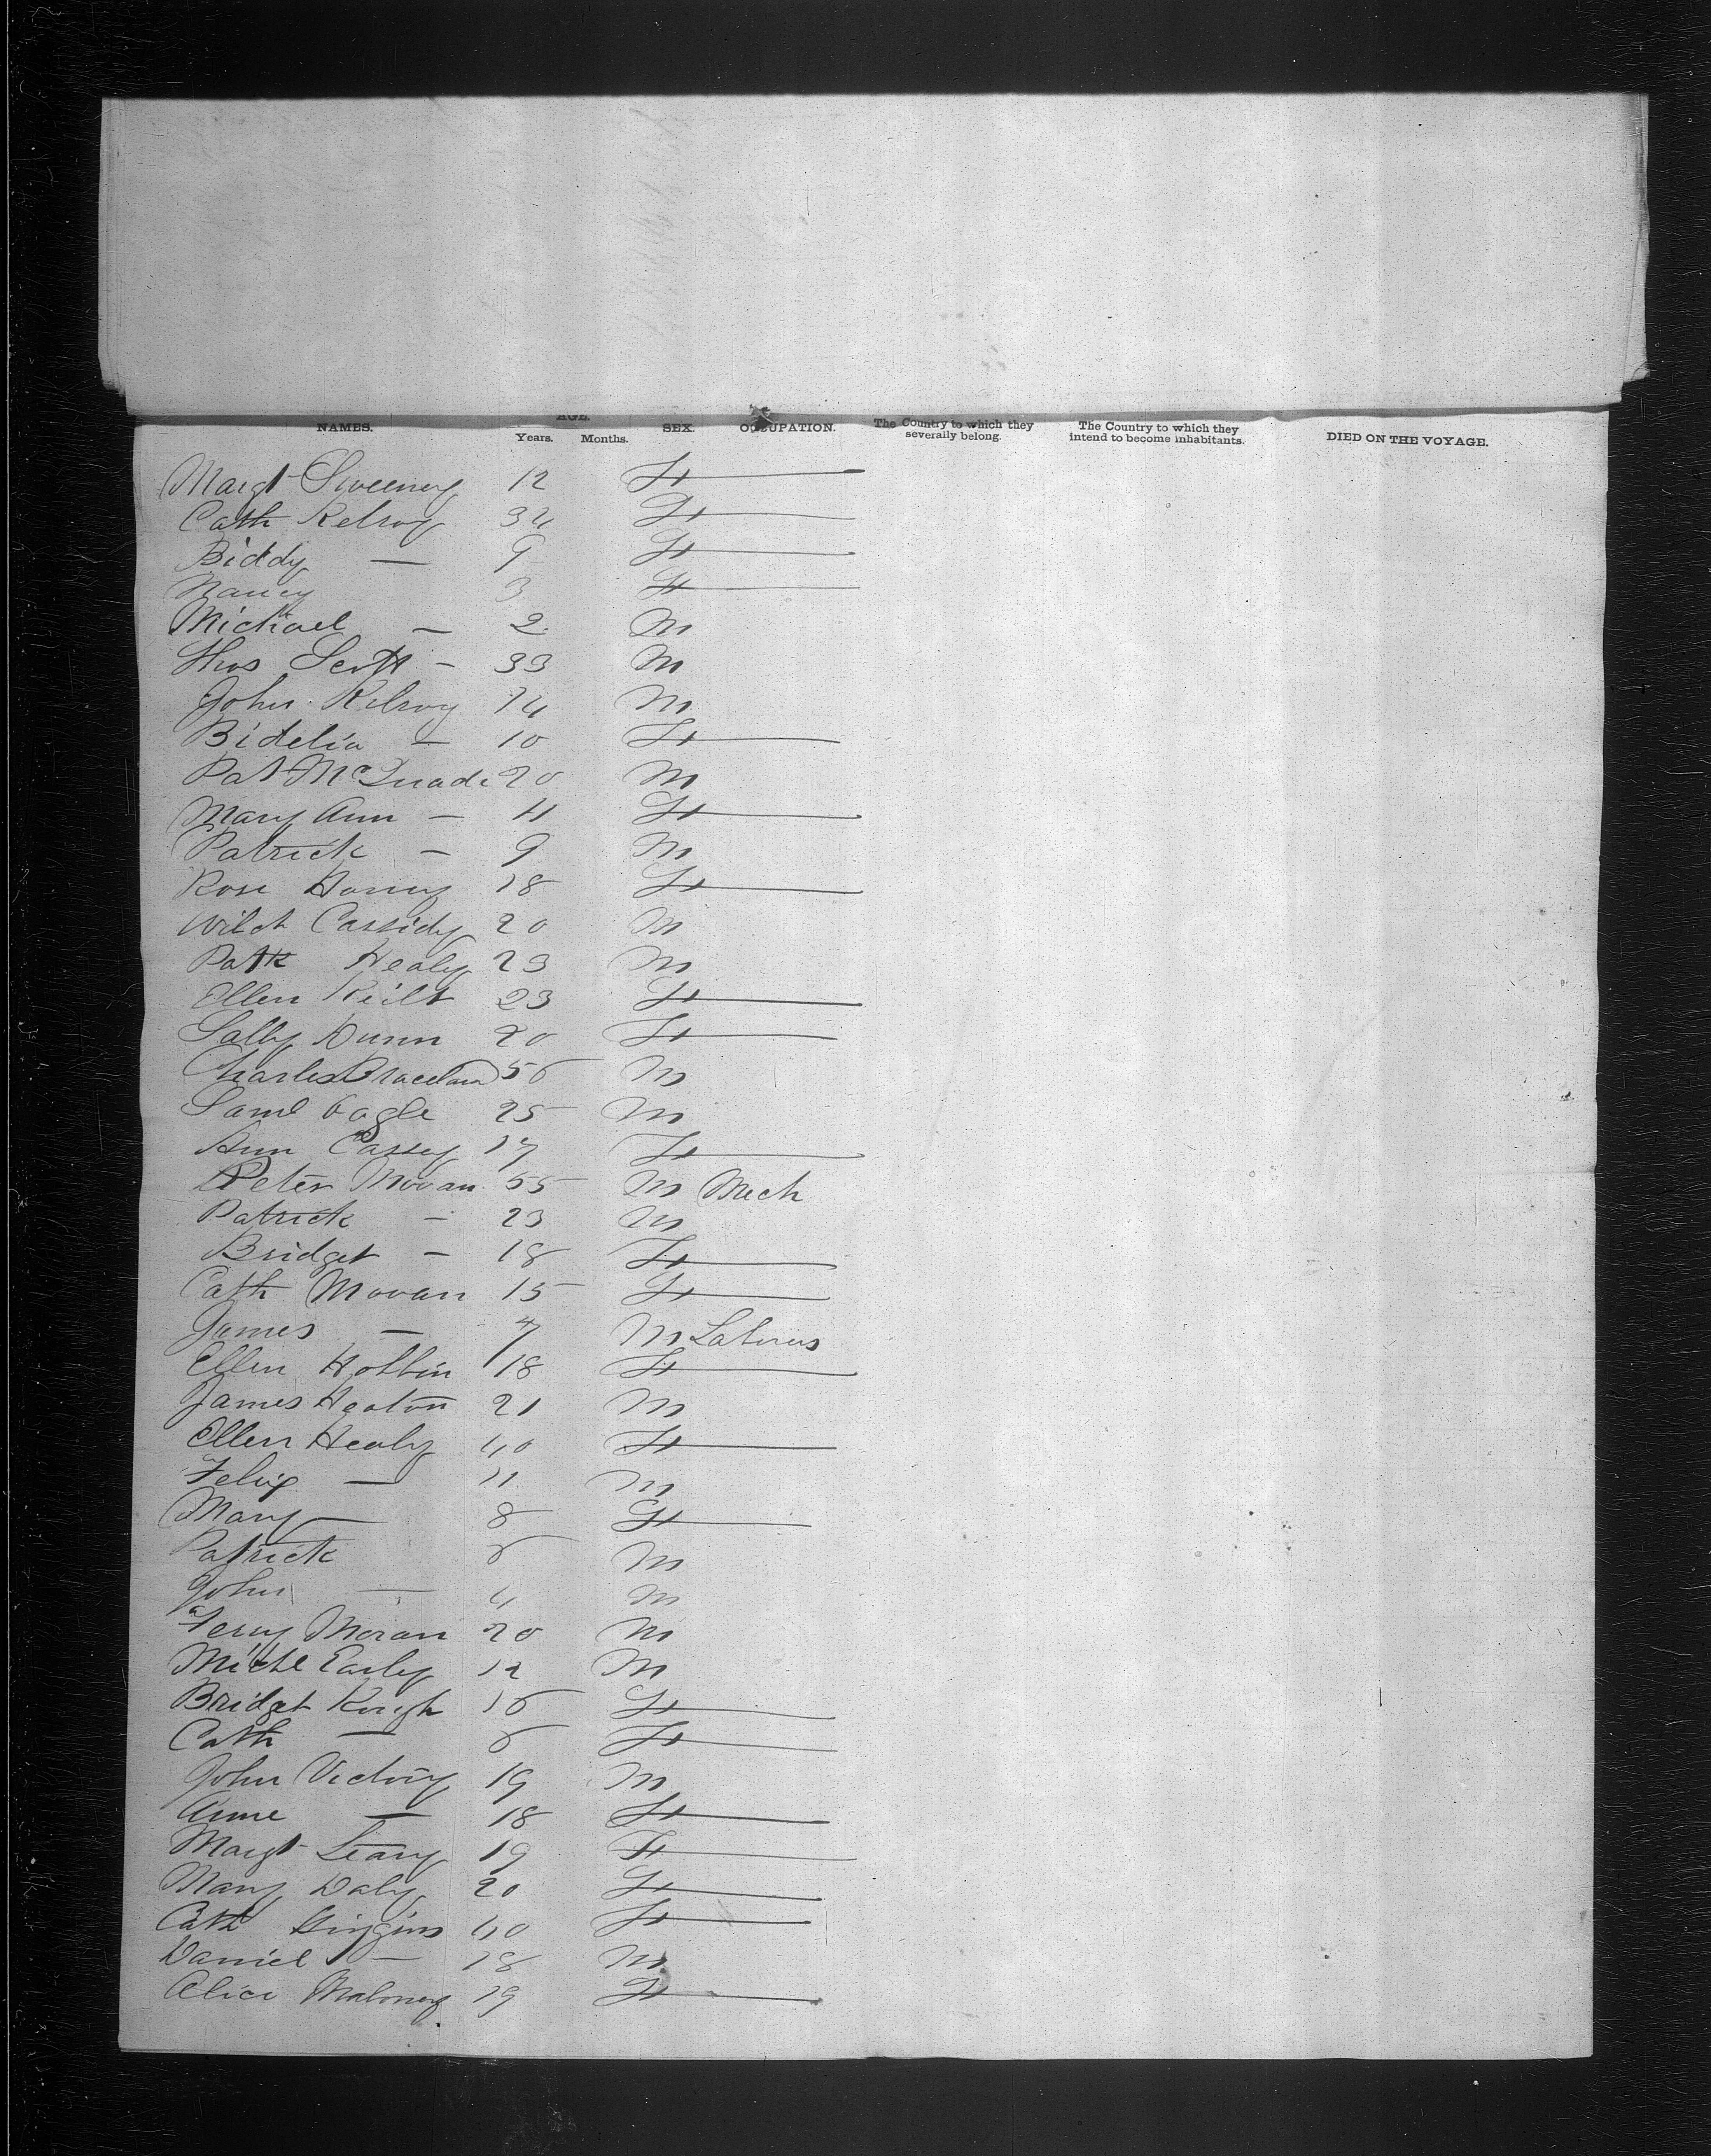 NAMES. AGE. Years. Months. SEX. OCCUPATION. The Country to which they severally belong. The Country to which they intend to become inhabitants. DIED ON THE VOYAGE.
Margt Sweeney 12 F
Cath Kelroy 34 F
Biddy — 9 F
Nancy 3 F
Michael — 2 M
Thos Scott - 33 M
John Kilroy 14 M
Bidelia - 10 F
Pat McQuade 20 M
Mary Ann - 11 F
Patrick - 9 M
Rose 18 F
Cassidy 20 M
Patk Healy 23 M
Ellen 23 F
Sally Dunn 20 F
Charles 56 M
Saml 25 M
Ann Cassey 17 F
Peter Moran 55 M Mech
Patrick - 23 M
Bridget - 18 F
Cath Moran 15 F
James — 7 M
Ellen 18 F
James Heaton 21 M
Ellen Healy 40 F
Felix — 11 M
Mary — 8 F
Patrick 6 M
John — 4 M
Moran 20 M
Michl Early 12 M
Bridget 16 F
Cath — 6 F
John Victory 19 M
Anne — 18 F
Margt Leary 19 F
Mary Daly 20 F
Cath Higgins 40 F
Daniel — 18 M
Alice Maloney 19 F